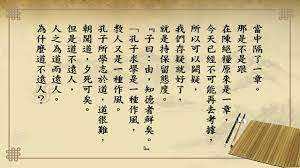 當中隔了一章。
那是不是跟
在陳絕糧原來是一章，
今天已經不可能再去考據，
所以可以闕疑，
我們存疑就好了，
就是持保留態度。
『子曰：由，知德者鮮矣。』
「孔子求學是一種作風，
教人又是一種作風。
孔子所學志於道，道很難，
朝聞道，夕死可矣。
但是道不遠人，
人之為道而遠人。
為什麼道不遠人？